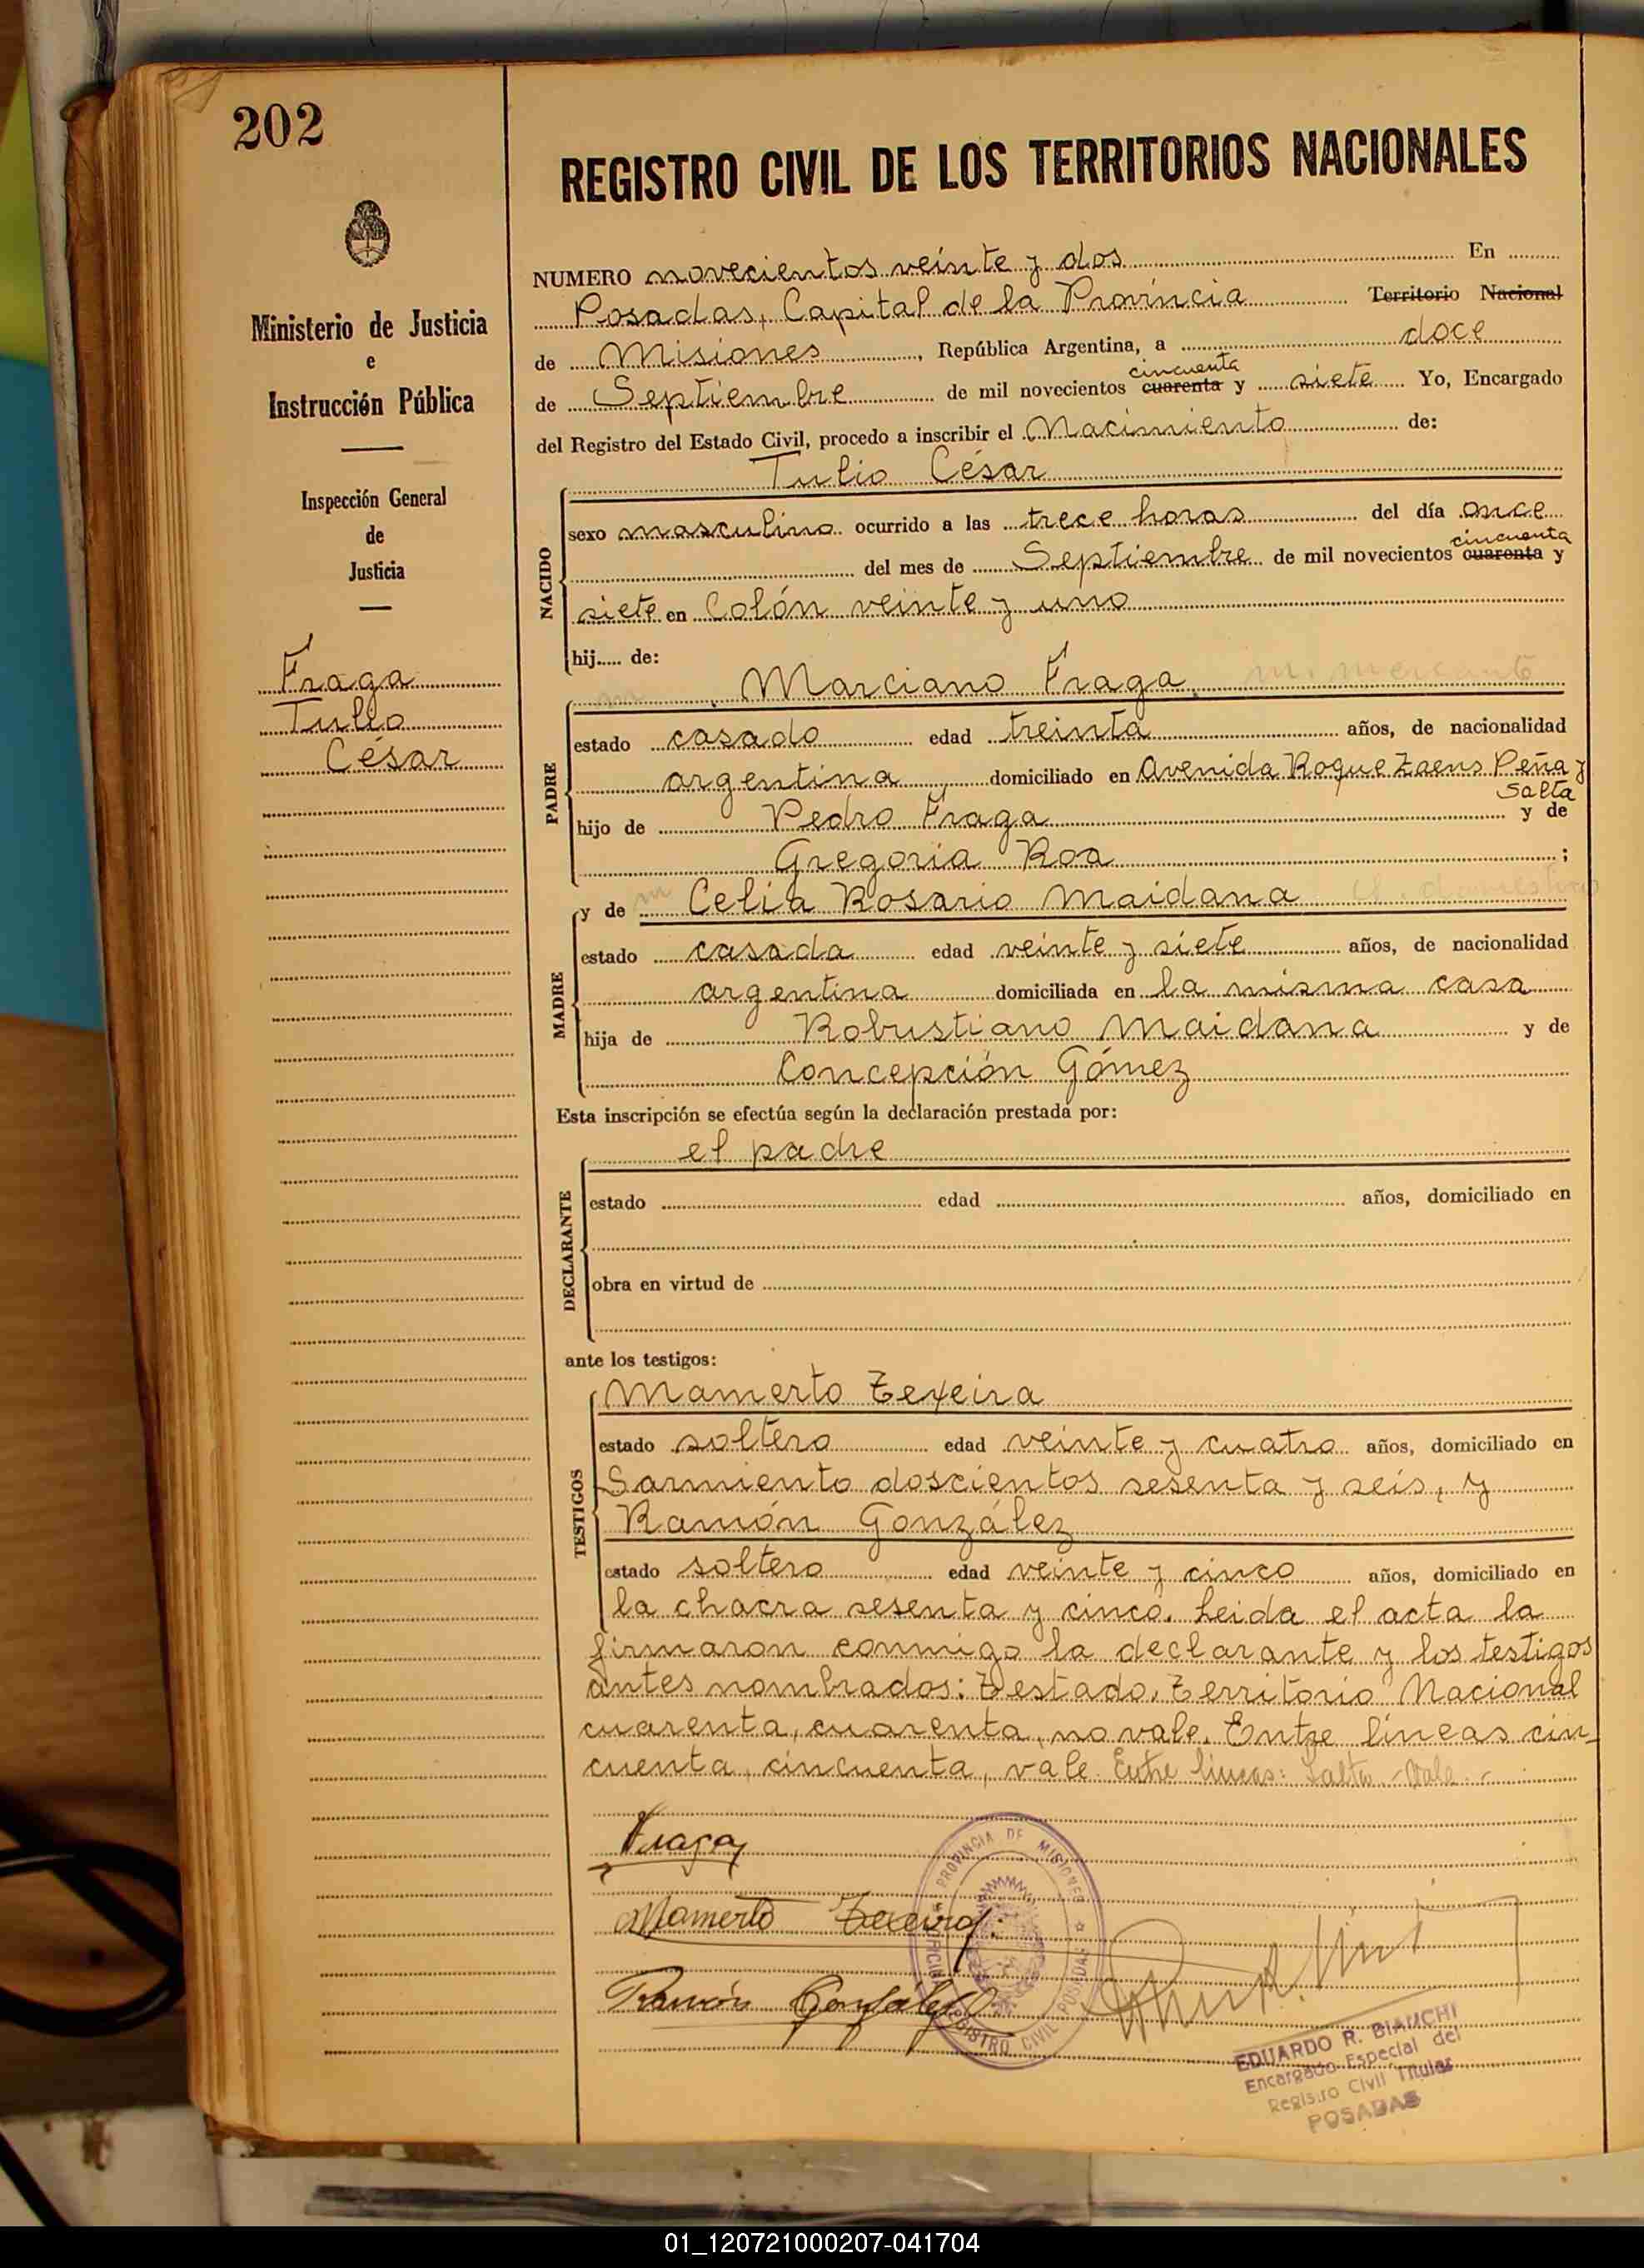 202
Ministerio de Justicia
e
Instrucción Pública
Inspección General
de
Justicia
Fraga
Tulio
César
REGISTRO CIVIL DE LOS TERRITORIOS NACIONALES
NUMERO novecientos veinte y dos En
Posadas, Capital de la Provincia Territorio Nacional
de Misiones, República Argentina, a doce
cincuenta
de Septiembre de mil novecientos cuarenta y siete Yo, Encargado
del Registro del Estado Civil, procedo a inscribir el Nacimiento de:
Tulio César
NACIDO
sexo masculino ocurrido a las trece horas del día once
cincuenta
del mes de Septiembre de mil novecientos cuarenta y
siete en Colón veinte y uno
hij..... de:
Marciano Fraga
PADRE
estado casado edad treinta años, de nacionalidad
argentina domiciliado en Avenida Roque Zaens Peña y
Salta
hijo de Pedro Fraga y de
Gregoria Roa ;
y de Celia Rosario Maidana
MADRE
estado casada edad veinte y siete años, de nacionalidad
argentina domiciliada en la misma casa
hija de Robustiano Maidana y de
Concepción Gómez
Esta inscripción se efectúa según la declaración prestada por:
el padre
DECLARANTE
estado edad años, domiciliado en
obra en virtud de
ante los testigos:
Mamerto Texeira
TESTIGOS
estado soltero edad veinte y cuatro años, domiciliado en
Sarmiento doscientos sesenta y seis, y
Ramón González
estado soltero edad veinte y cinco años, domiciliado en
la chacra sesenta y cinco. Leida el acta la
firmaron conmigo la declarante y los testigos
antes nombrados: Testado, Territorio Nacional
cuarenta, cuarenta, no vale. Entre líneas cin-
cuenta, cincuenta, vale. Entre lineas: Salta - Vale.-
Fraga
Mamerto Texeira
Ramón González
PROVINCIA DE MISIONES
OFICINA REGISTRO CIVIL POSADAS
EDUARDO R. BIANCHI
Encargado Especial del
Registro Civil Titular
POSADAS
01_120721000207-041704